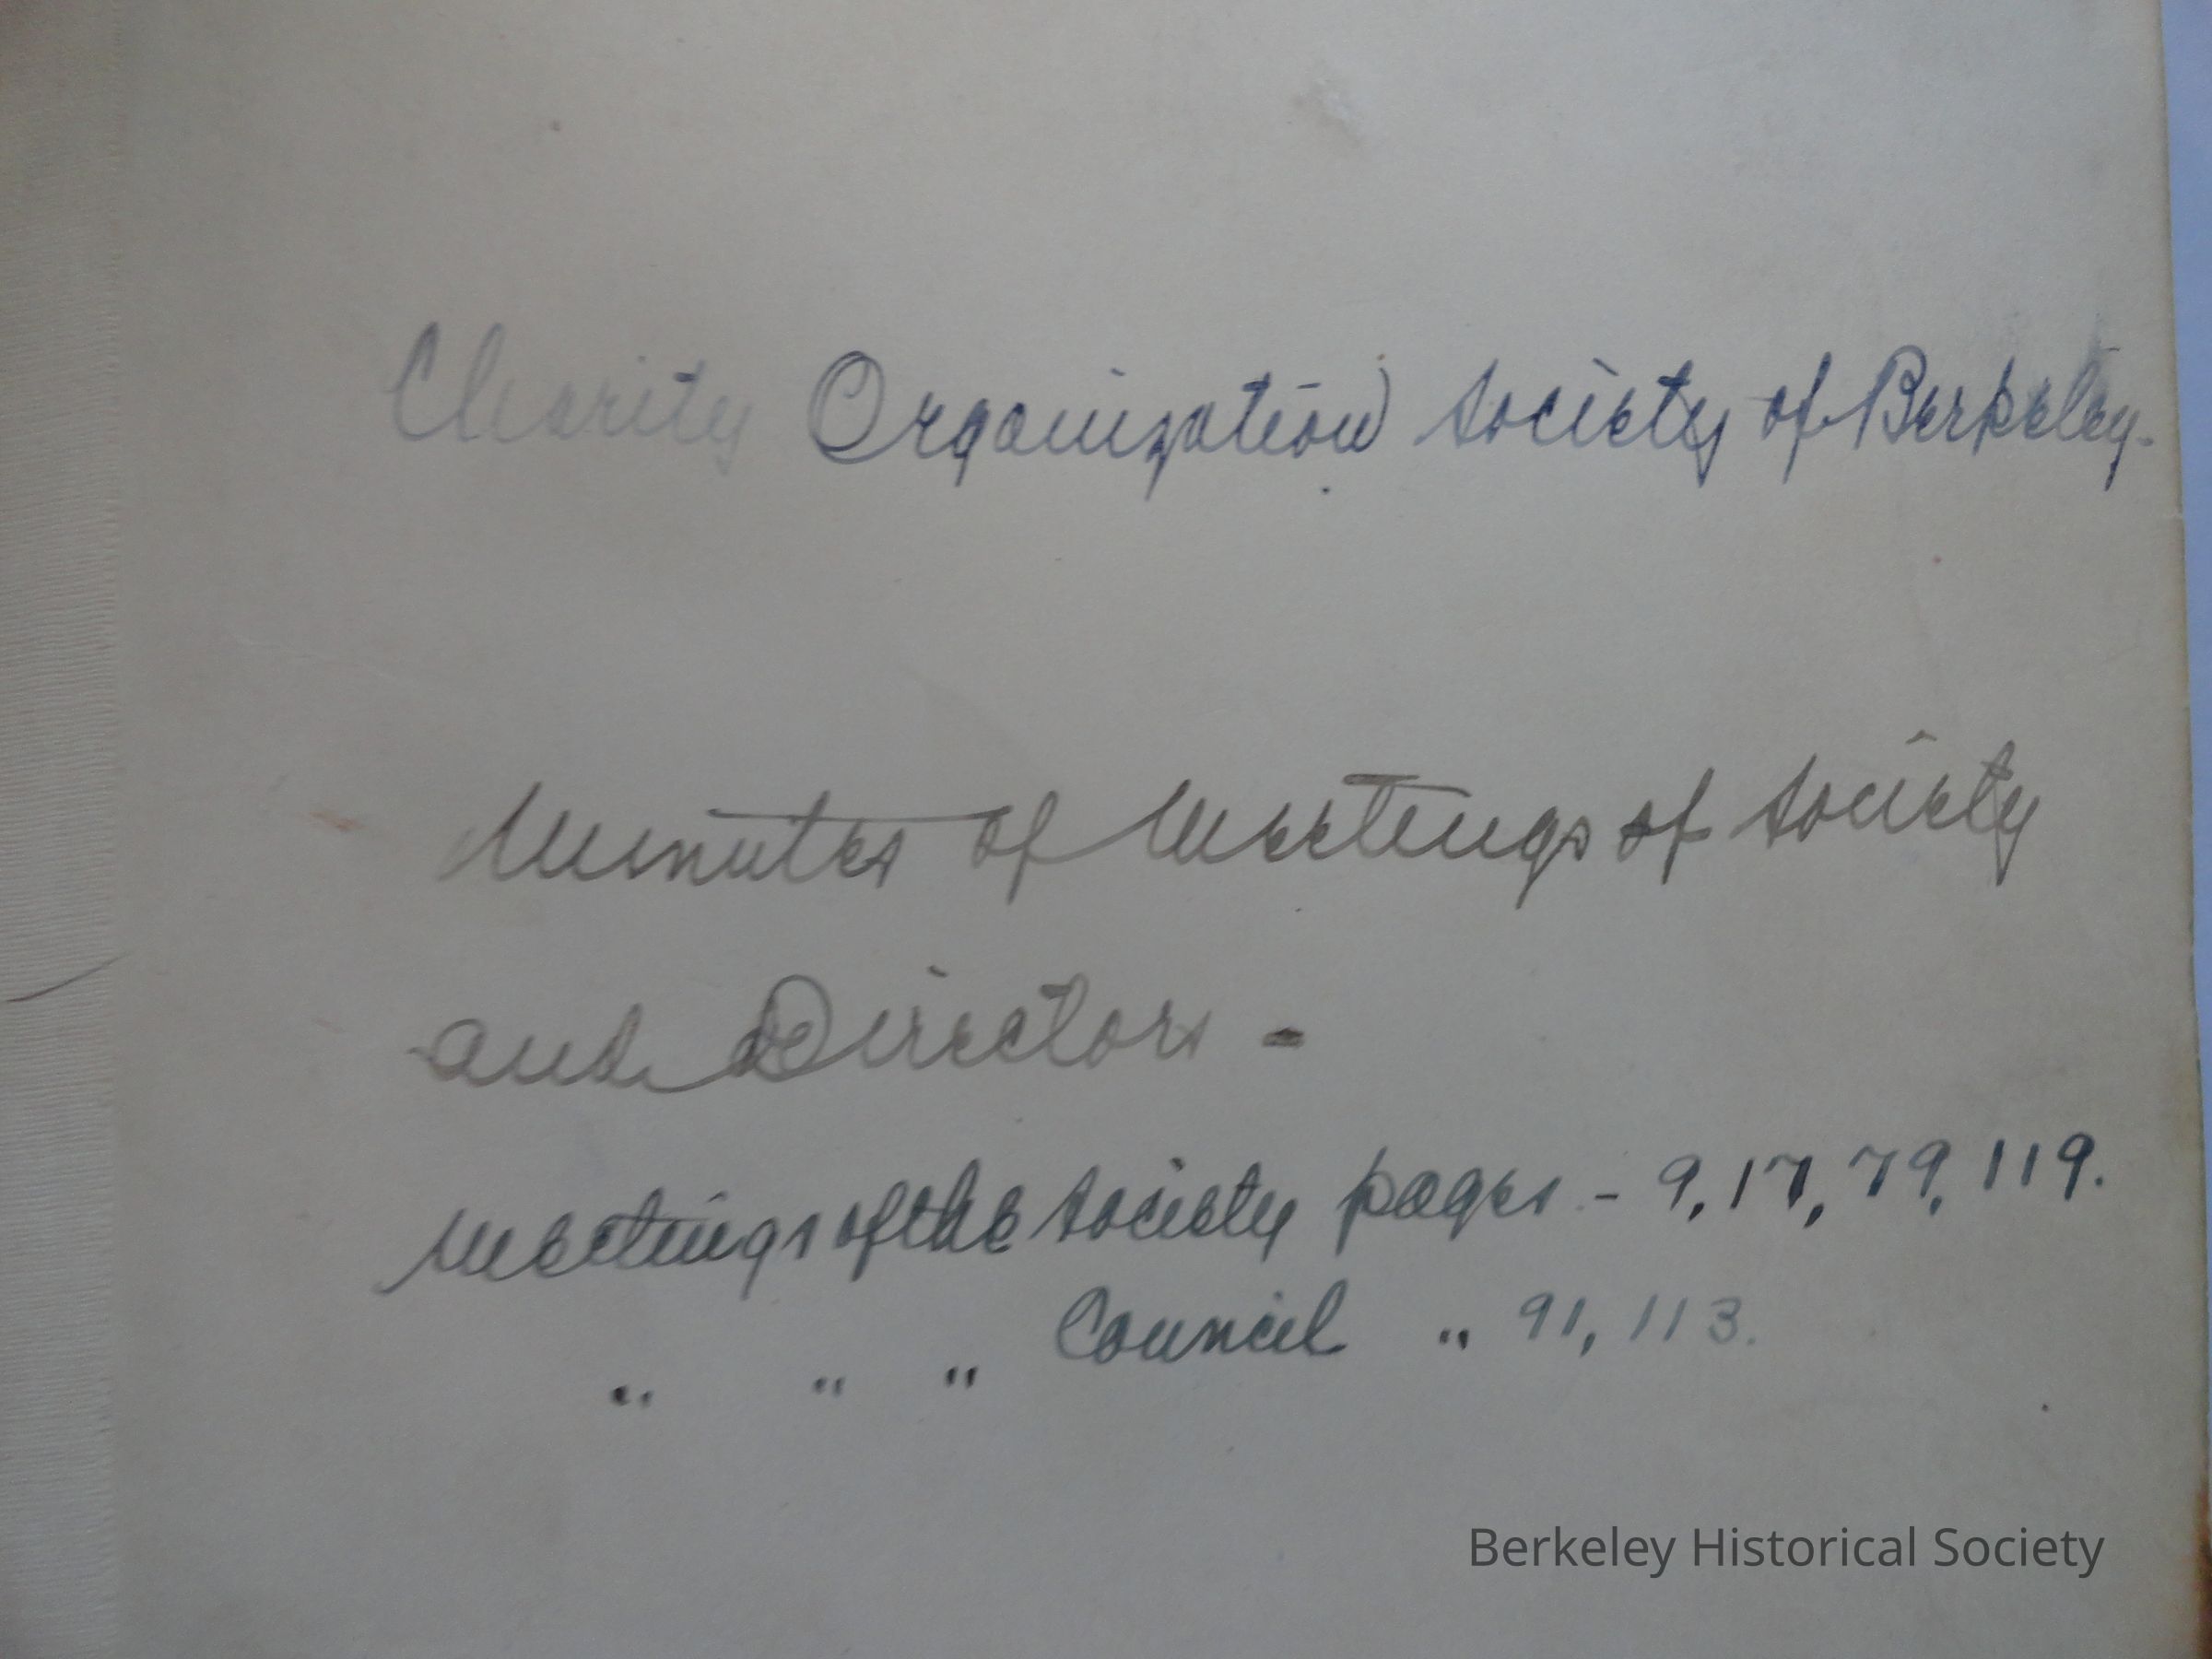 Charity Organization Society of Berkeley.
Minutes of Meetings of Society
and Directors -
Meetings of the Society pages - 9, 17, 79, 119.
" " " Council " 91, 113.
Berkeley Historical Society